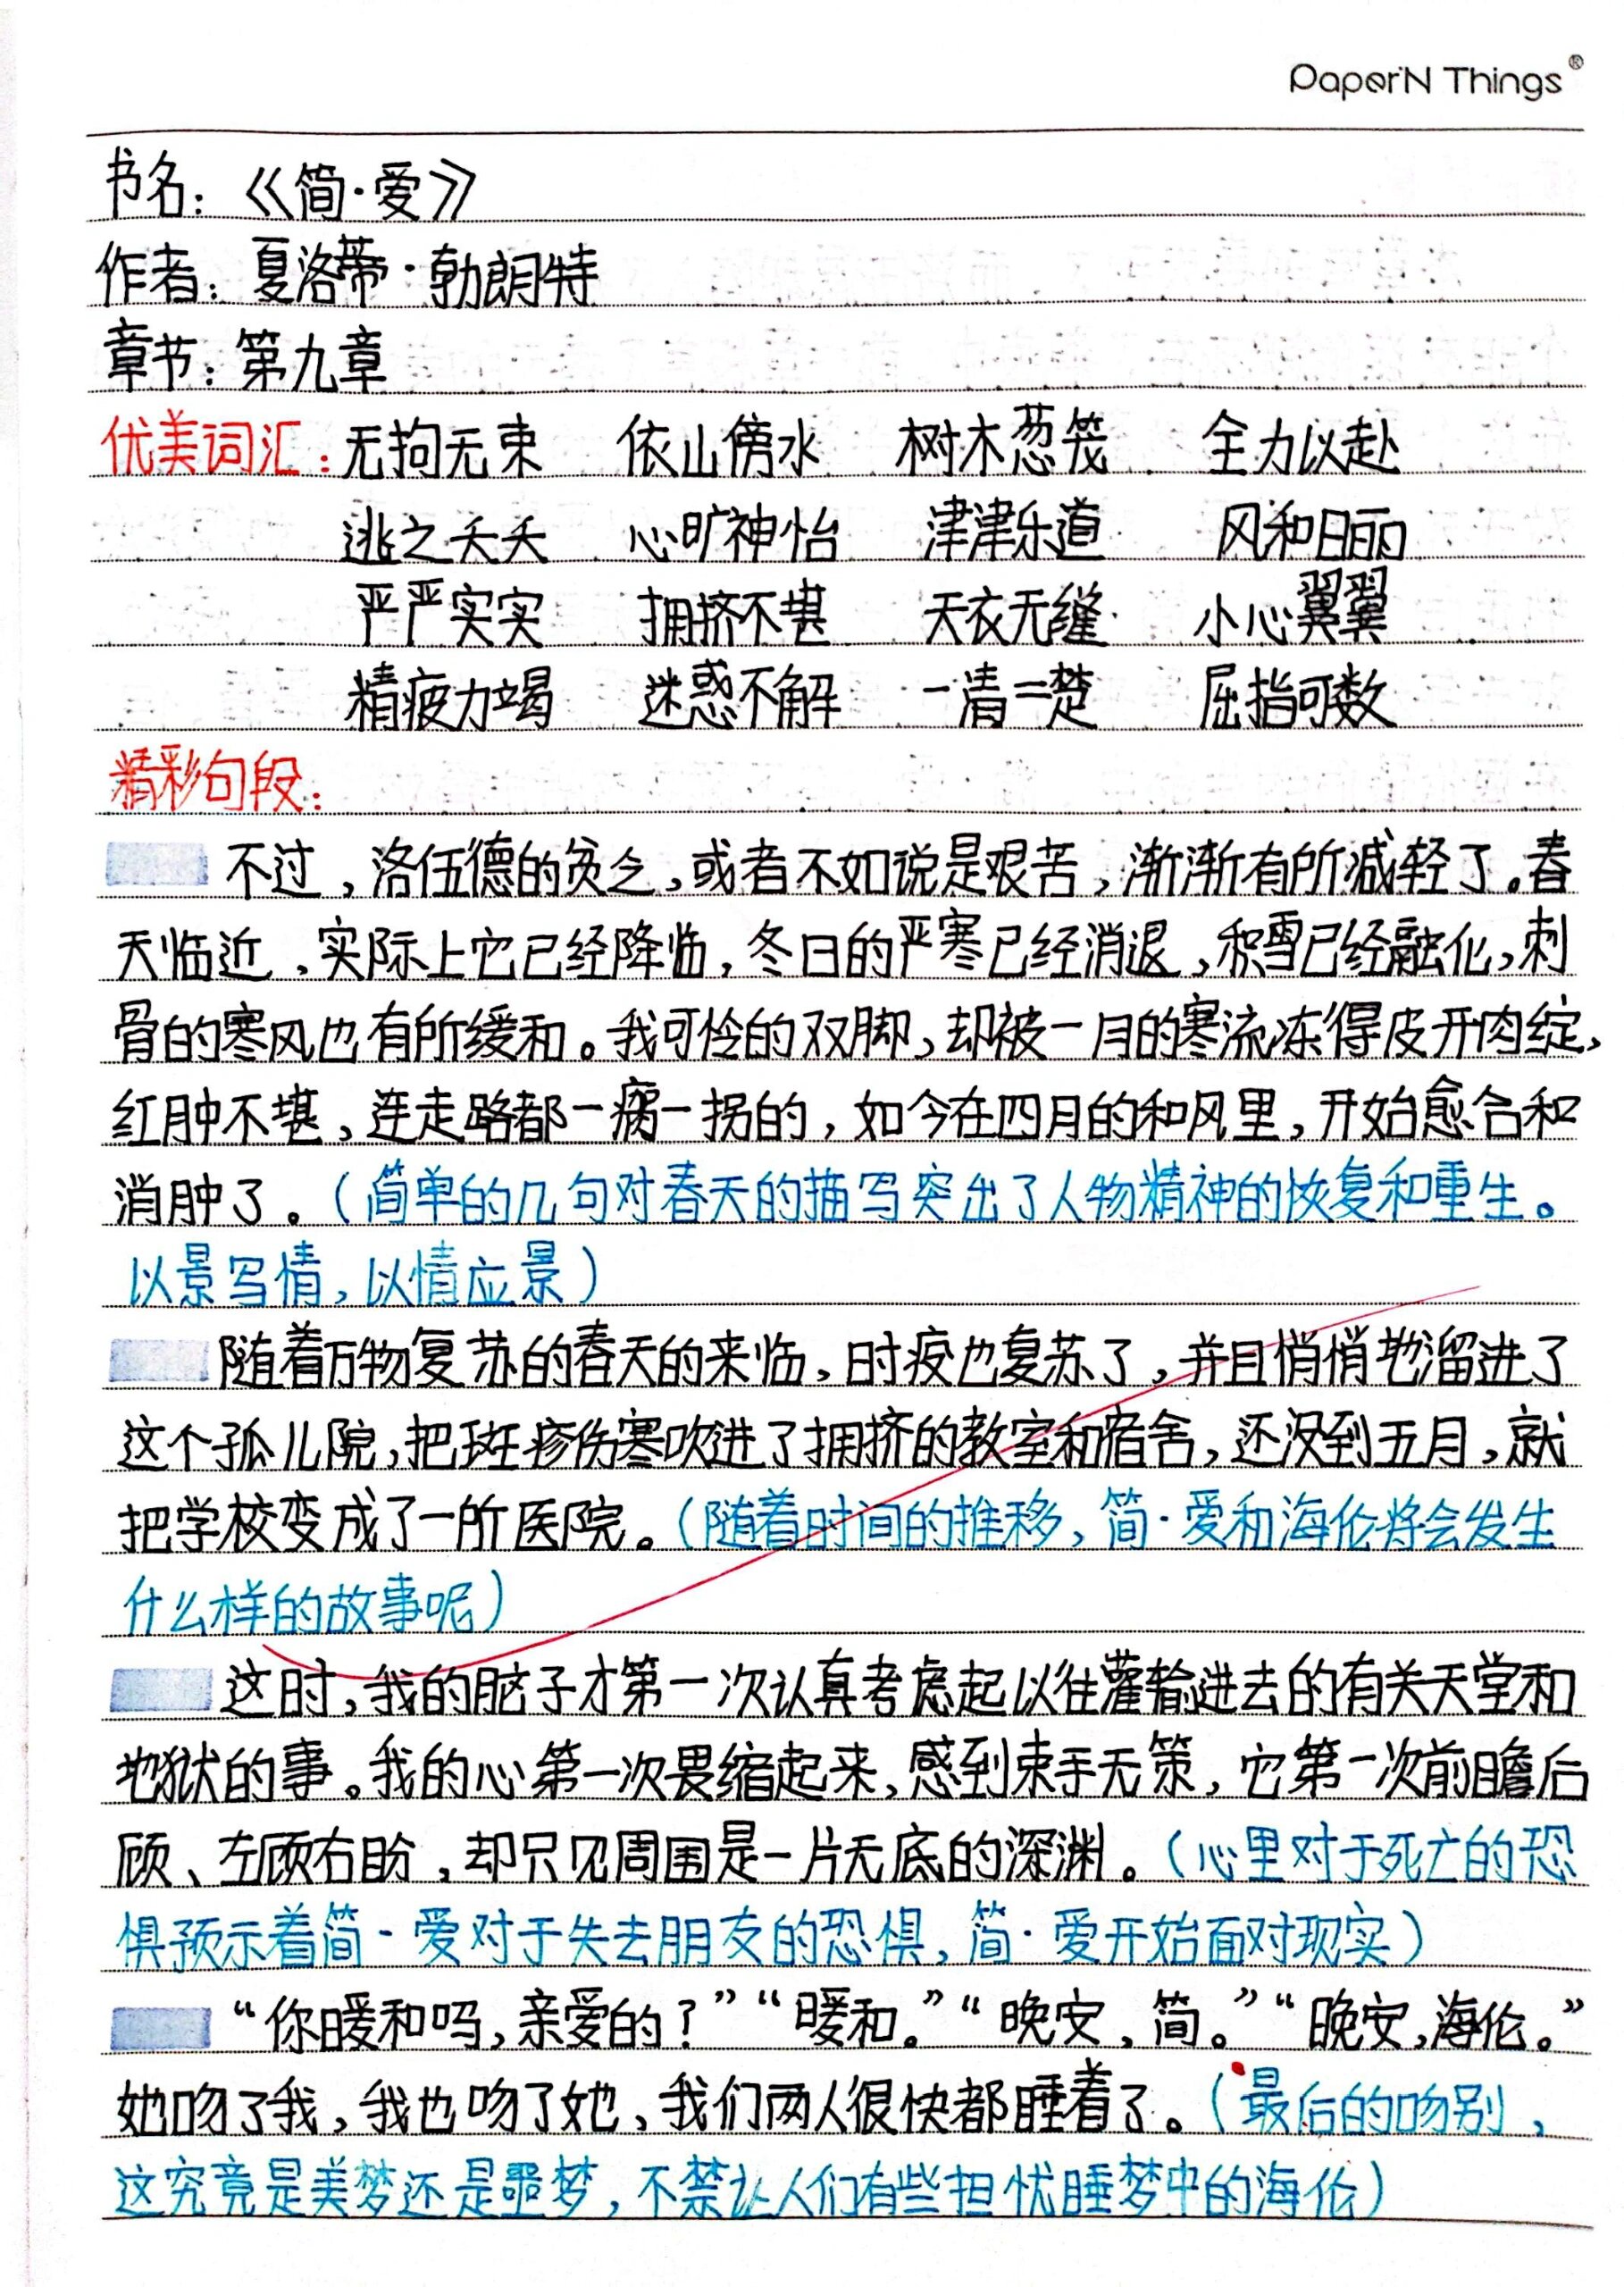 Paper'N Things®
书名：《简·爱》
作者：夏洛蒂·勃朗特
章节：第九章
优美词汇：无拘无束 依山傍水 树木葱茏 全力以赴
逃之夭夭 心旷神怡 津津乐道 风和日丽
严严实实 拥挤不堪 天衣无缝 小心翼翼
精疲力竭 迷惑不解 一清二楚 屈指可数
精彩句段：
不过，洛伍德的贫乏，或者不如说是艰苦，渐渐有所减轻了。春
天临近，实际上它已经降临，冬日的严寒已经消退，积雪已经融化，刺
骨的寒风也有所缓和。我可怜的双脚，却被一月的寒流冻得皮开肉绽，
红肿不堪，连走路都一瘸一拐的，如今在四月的和风里，开始愈合和
消肿了。（简单的几句对春天的描写突出了人物精神的恢复和重生。
以景写情，以情应景）
随着万物复苏的春天的来临，时疫也复苏了，并且悄悄地溜进了
这个孤儿院，把斑疹伤寒吹进了拥挤的教室和宿舍，还没到五月，就
把学校变成了一所医院。（随着时间的推移，简·爱和海伦将会发生
什么样的故事呢）
这时，我的脑子才第一次认真考虑起以往灌输进去的有关天堂和
地狱的事。我的心第一次畏缩起来，感到束手无策，它第一次前瞻后
顾、左顾右盼，却只见周围是一片无底的深渊。（心里对于死亡的恐
惧预示着简·爱对于失去朋友的恐惧，简·爱开始面对现实）
“你暖和吗，亲爱的？”“暖和。”“晚安，简。”“晚安，海伦。”
她吻了我，我也吻了她，我们两人很快都睡着了。（最后的吻别，
这究竟是美梦还是噩梦，不禁让人们有些担忧睡梦中的海伦）